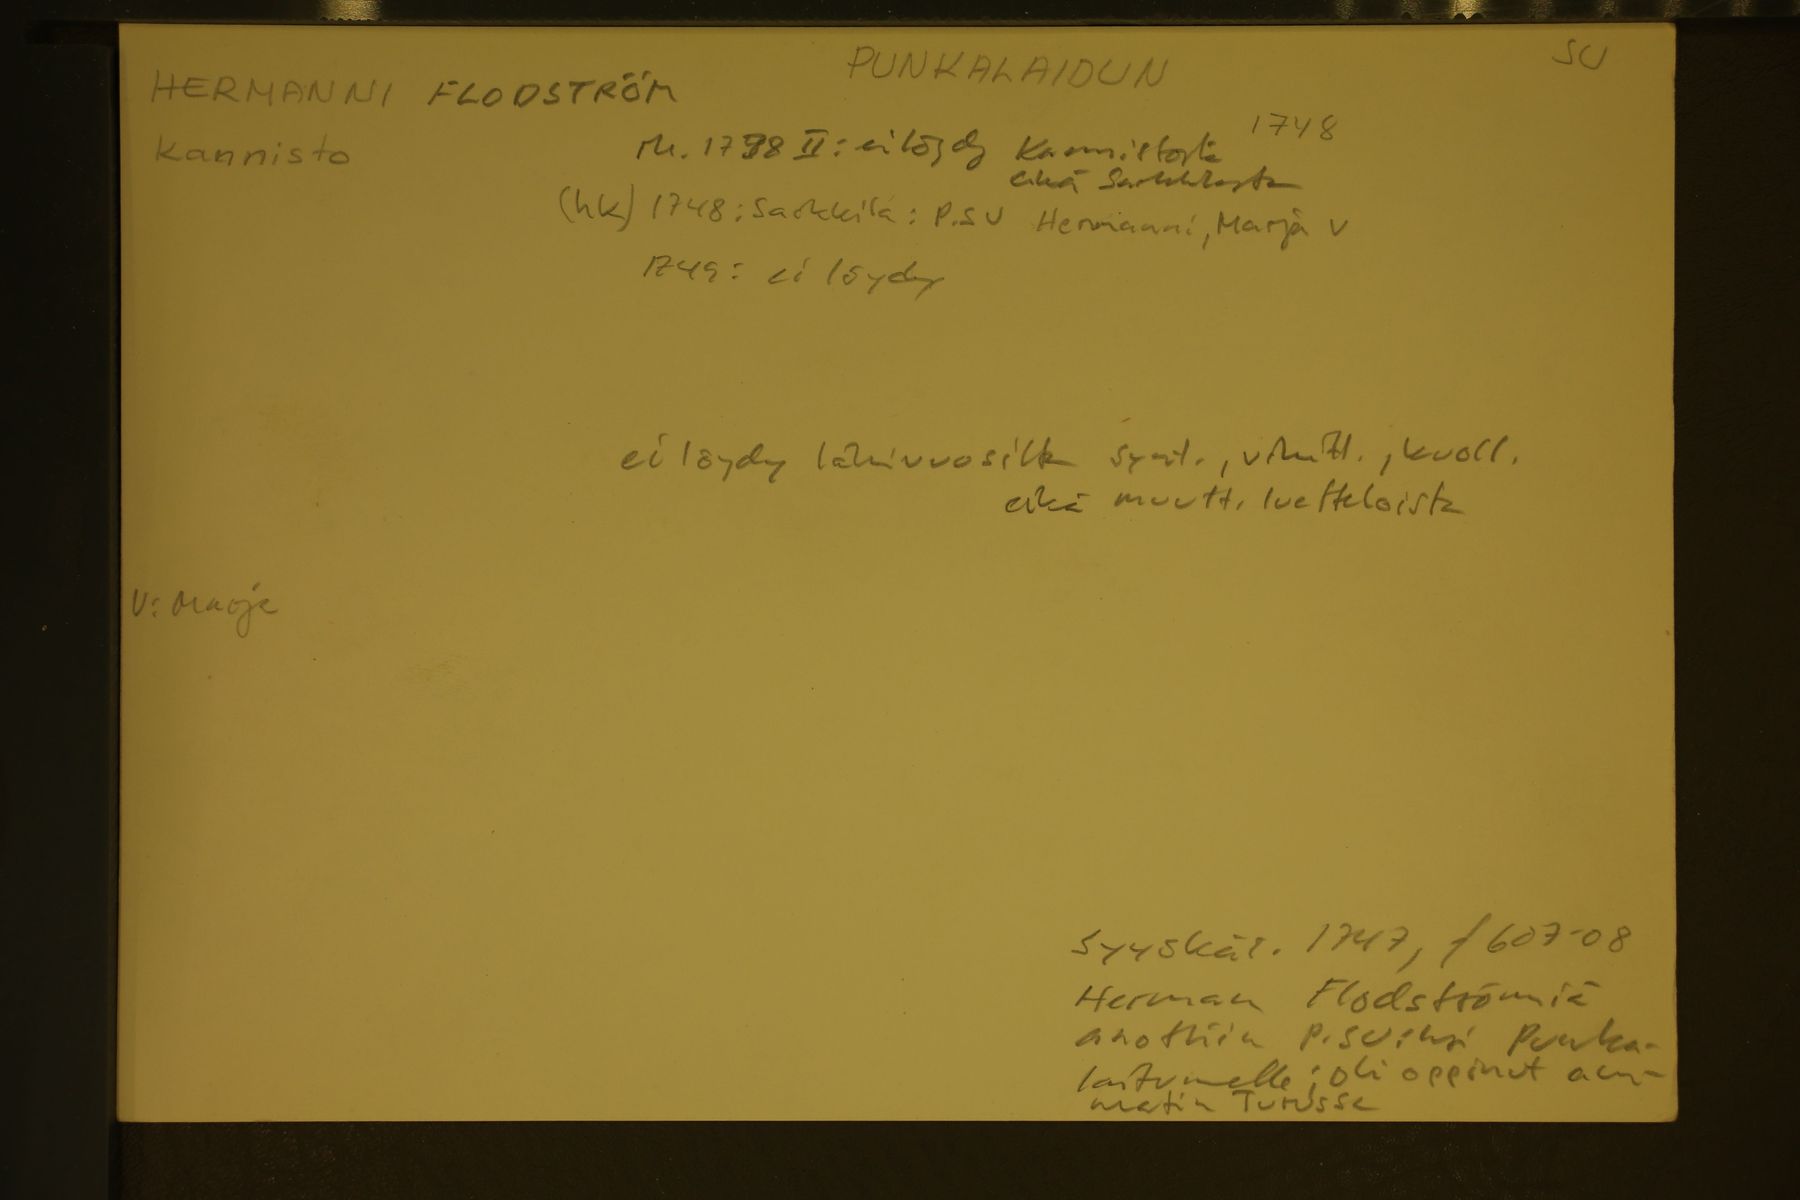 PUNKALAIDUN
SU
HERMANNI FLODSTRÖM
1748
Kannisto
rk. 1738 II: ei löydy Kannistosta
eikä Sarkkilasta
(hk) 1748: Sarkkila: p.SU Hermanni, Marja v
1749: ei löydy
ei löydy lähivuosilta synt., vihitt., kuoll.
eikä muutt. luetteloista
V: Marja
Syyskär. 1747, f 607-08
Herman Flodströmiä
anottiin p.SU:ksi Punka-
laitumelle; oli oppinut am-
matin Turussa